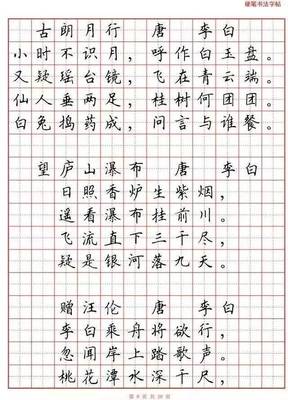 硬笔书法字帖
古朗月行 唐 李白
小时不识月，呼作白玉盘。
又疑瑶台镜，飞在青云端。
仙人垂两足，桂树何团团。
白兔捣药成，问言与谁餐。
望庐山瀑布 唐 李白
日照香炉生紫烟，
遥看瀑布挂前川。
飞流直下三千尺，
疑是银河落九天。
赠汪伦 唐 李白
李白乘舟将欲行，
忽闻岸上踏歌声。
桃花潭水深千尺，